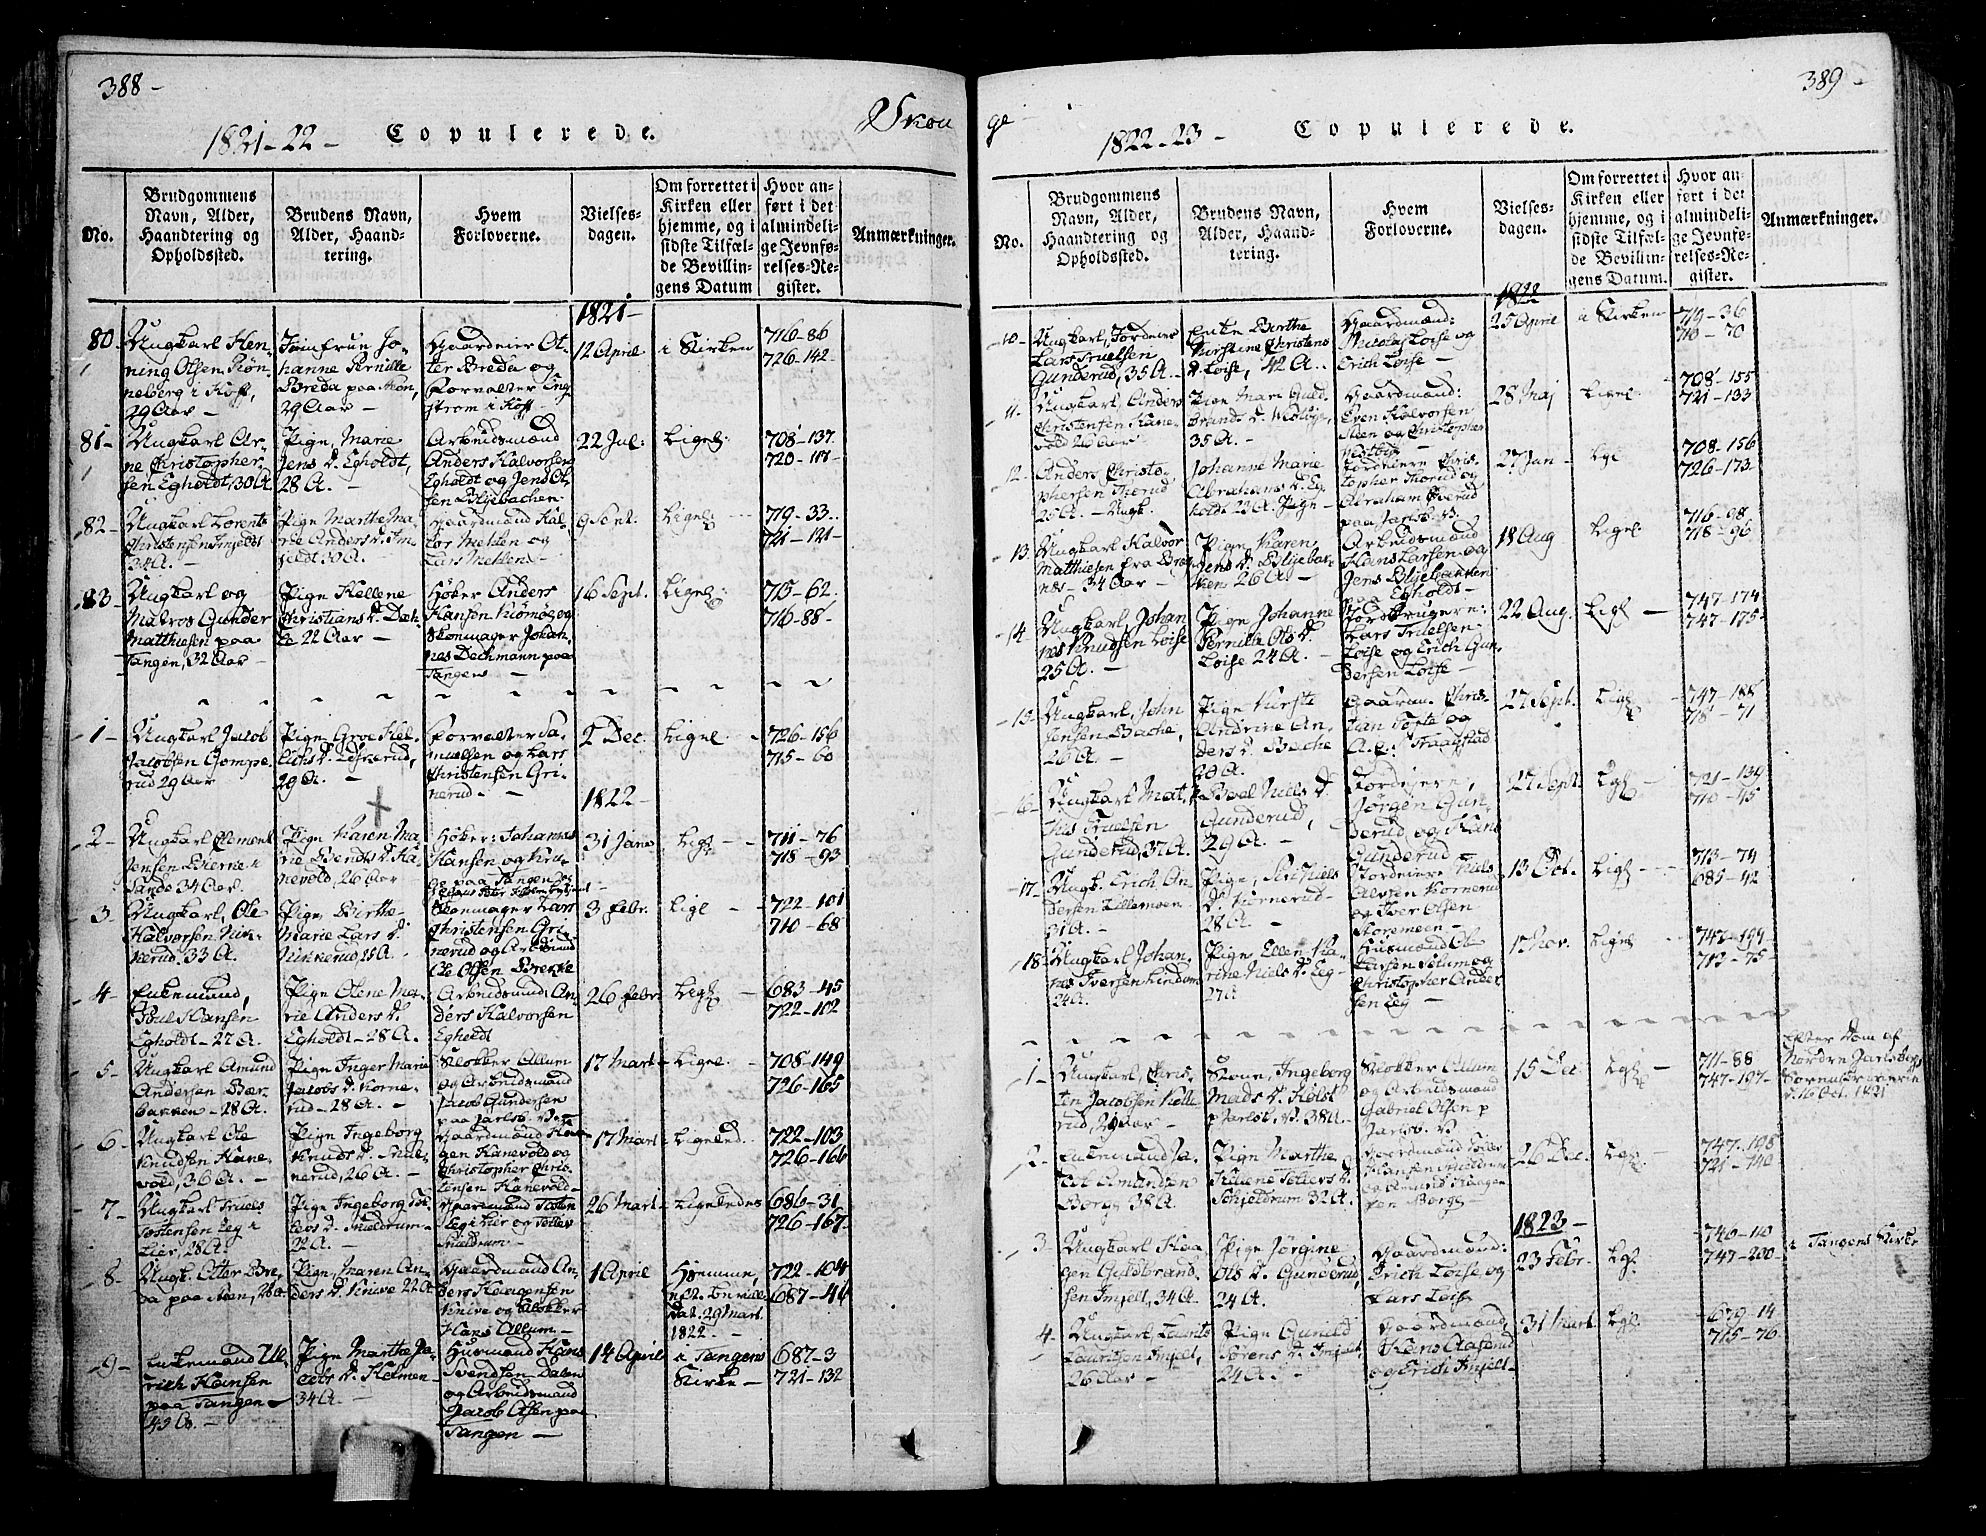 388-
1821-22- Copulerede. Skou
No.
Brudgommens Navn, Alder, Haandtering og Opholdssted.
Brudens Navn, Alder, Haandtering.
Hvem Forloverne.
Vielsesdagen.
Om forrettet i Kirken eller hjemme, og i sidste Tilfælde Bevillingens Datum
Hvor anført i det almindelige Jevnførelses-Register.
Anmærkninger.
1821-
80-
Ungkarl Hen-
ning Olsen Røn-
neberg i Hoff,
29 Aar -
Jomfrue Jo-
hanne Pernille
Breda paa Aoen,
29 Aar -
Gaardeier Ot-
ter Breda og
Forvalter Eng
strøm i Hoff -
12 April
i Kirken
716-86
726-142
81-
Ungkarl Ar-
ne Christopher-
sen Egholdt, 30 A
Pige, Marie
Jens D. Egholdt,
28 A. -
Arbeidsmænd
Anders Halvorsen
Egholdt og Jens Ol-
sen Blyebachen
22 Jul:
Ligel:
708-137
720-117-
82-
Ungkarl Lorents
Christensen Imjeldt
34 A. -
Pige Marthe Ma-
rie Anders D. Im-
jeldt 30 A.
Gaardmænd Hal-
vor Mehlen og
Lars Mehlen
9 Sept.
Ligel
719-33
721-121-
83-
Ungkarl og
Matros Gunder
Matthiesen paa
Tangen, 32 Aar -
Pige Hellene
Christians D.
22 Aar -
Høker Anders
Hansen Kiømøe og
Skomager Johan-
nes Dechmann paa
Tangen -
16 Sept.
Ligel
715-62
716-88-
1-
Ungkarl Jacob
Jacobsen Gompe-
rud 29 Aar
Pige Groe Hel-
lichs D. Eskerud,
29 A. -
Forvalter Sa-
muelsen og Lars
Christensen Gri-
nerud. -
2 Dec.
Ligel -
726-156
715-60
1822-
2-
Ungkarl Clement
Jensen Bierne i
Sande 34 Aar
Pige Karen Ma-
rie Bendts D. Ha-
nevold, 26 Aar -
Høker: Johannes
Hansen og
paa Tangen
31 Janu
Ligl -
711-76
718-93
3-
Ungkarl, Ole
Halvorsen Nik-
kerud. 33 A.
Pige, Berthe
Marie Lars D.
Nikkerud, 25 A. -
Skomager Lars
Christensen Gri-
nerud og Arbeidsmand
Ole Olsen Brekke
3 Febr.
Ligl -
722-101
710-68
4-
Enkemand,
Poul Hansen
Egholdt - 27 A.
Pige Olene Ma-
rie Anders D.
Egholdt - 28 A.
Arbeidsmand An-
ders Halvorsen
Egholdt
26 Febr
Ligl -
683-45
722-102
5-
Ungkarl Amund
Andersen Bær-
bakken - 28 A.
Pige Inger Marie
Jacobs D. Korne-
rud - 28 A. -
Klokker Allum
og Arbeidsmand
Jacob Gundersen
paa Jarlsb. V.
17 Mart -
Ligel:
708-149
726-165
6-
Ungkarl Ole
Knudsen Hane-
vold, 36 A. -
Pige Ingeborg
Knuds D.
nerud, 26 A. -
Gaardmænd Haa-
gen Hanevold og
Christopher Chris-
tensen Hanevold -
17 Mart
Ligeled.
722-103
726-166
7-
Ungkarl Truels
Tostensen Eeg i
Lier, 28 A.
Pige Ingeborg Tol-
levs D. Skieldrum -
22 A. -
Gaardmænd Tosten
Eeg i Lier og Tollev
Skieldrum -
26 Mart -
Ligeledes
686-31
726-167
8-
Ungk. Otter Bre-
da paa Aoen, 28 A
Pige, Maren An-
ders D. Knive 22 A
Gaardmænd An-
ders Haagensen
Knive og Klokker
Hans Allum -
1 April
Hjemme,
eft. Beville
Dat. 29 Mart.
1822. -
722-104
687-44
9-
Enkemand Ul-
rich Hansen
paa Tangen -
43 A. -
Pige Marthe Ja-
cobs D. Holmen
34 A. -
Husmænd Hans
Svendsen Dalen
og Arbeidsmand
Jacob Olsen paa
Tangen -
14 April
i Tangens
Kirke -
687-3
721-132
389-
ge 1822-23- Copulerede.
No.
Brudgommens Navn, Alder, Haandtering og Opholdssted.
Brudens Navn, Alder, Haandtering.
Hvem Forloverne.
Vielsesdagen.
Om forrettet i Kirken eller hjemme, og i sidste Tilfælde Bevillingens Datum.
Hvor anført i det almindelige Jevnførelses-Register.
Anmærkninger.
1822
10-
Ungkarl, Jordeier
Lars Truelsen
Gunderud, 35 A. -
Enke Berthe
Kirstine Christens
D. Loise, 42 A. -
Gaardmænd:
Nicolaj Loise og
Erich Loise -
25 April
i Kirken
719-36
710-70
11-
Ungkarl, Anders
Christensen Hane-
vold 26 Aar
Pige Mari Guld-
brands D.
35 A. -
Gaardmænd:
Even Halvorsen
Steen og Christopher
Nestbye -
28 Maj
Ligel:
708-155
721-133
12-
Anders Christo-
phersen Thorud
25 A. - Ungk.
Johanne Marie
Abrahams D. Eg-
holdt 22 A. Pige -
Jordeiere Chris-
topher Thorud og
Abraham Sverud
paa Jarlsb. V.
27 Jun -
Lgl
708-156
726-173
13
Ungkarl Halvor
Matthiesen fra
- 34 Aar -
Pige Karen
Jens D. Blyebak-
ken 26 A. -
Arbeidsmænd
Hans Larsen og
Jens Blyebakken
paa Egholdt -
18 Aug
Ligel
716-98
718-96
14
Ungkarl, Johan
nes Knudsen Loise
25 A. -
Pige Johanne
Pernille Ols D.
Loise 24 A. -
Jordbrugere:
Lars Truelsen
Loise og Erich Gun-
dersen Loise -
22 Aug.
Ligl -
747-174
747-175-
15-
Ungkarl, John
Jensen Bache,
26 A. -
Pige Kirste
Andrine An-
ders D. Bache
20 A. -
Gaarm. Chris-
tian Tofte og
A. P. Kraagstad
27 Sept.
Ligl
747-188
718-71
16-
Ungkarl Mat-
this Truelsen
Gunderud, 37 A.
P. Boel Niels D.
Gunderud,
29 A. -
Jordeiere,
Jørgen Gun-
derud og Hans
Gunderud
27 Sept.
Lgl -
721-139
710-45
17-
Ungk. Erich An
dersen Lillemoen
31 A. -
Pige, Siri Niels
D. Kornerud -
28 A. -
Jordeiere Niels
Alvsen Kornerud
og Iver Olsen
Storemoen -
13 Oct.
Ligl -
713-74
685-42
18-
Ungkarl Johan-
nes Iversen Lindum
24 A.
Pige, Ellen Ka-
rine Niels D. Eeg -
27 A
Husmænd Ole
Larsen Solum og
Christopher Ander
sen Eeg -
17 Nov.
Ligel
747-199
713-75
1-
Ungkarl, Chris-
ten Jacobsen Kolle
rud, 29 Aar -
Skoue, Ingeborg
Mads D. Holst
p Jarlsb. V. 38 A. -
Klokker Allum
og Arbeidsmand
Gabriel Olsen p
Jarlsb. V
15 Dec
Lgl -
711-88
747-197-
Efter Dom af
Nordre Jarlsbergs
Sorenskriverie
d. 16 Oct. 1821
2-
Enkemand Ja-
cob Amundsen
Borge 38 A.
Pige Marthe
Helene Tollevs D.
Schjeldrum 32 A.
Gaardmænd
Hansen Skieldrum
og Amund Haagen
sen Borge -
26 Dec.
Lgl.
747-198
721-140
1823-
3-
Ungkarl Haa-
gen Guldbrand-
sen Imjelt, 34 A
Pige Jørgine
Ols D. Gunderud,
24 A.
Gaardmænd:
Erich Loise og
Lars Loise
23 Febr.
Lgl.
740-10
747-200
i Tangens Kirke
4-
Ungkarl, Laurits
Lauritsen Imjelt,
26 Aar -
Pige Gunild
Sørens D. Imjelt,
24 A. -
Gaardmænd,
Hans Aaserud
og Erich Imjelt -
31 Mart.
Lgl.
679-14
715-76